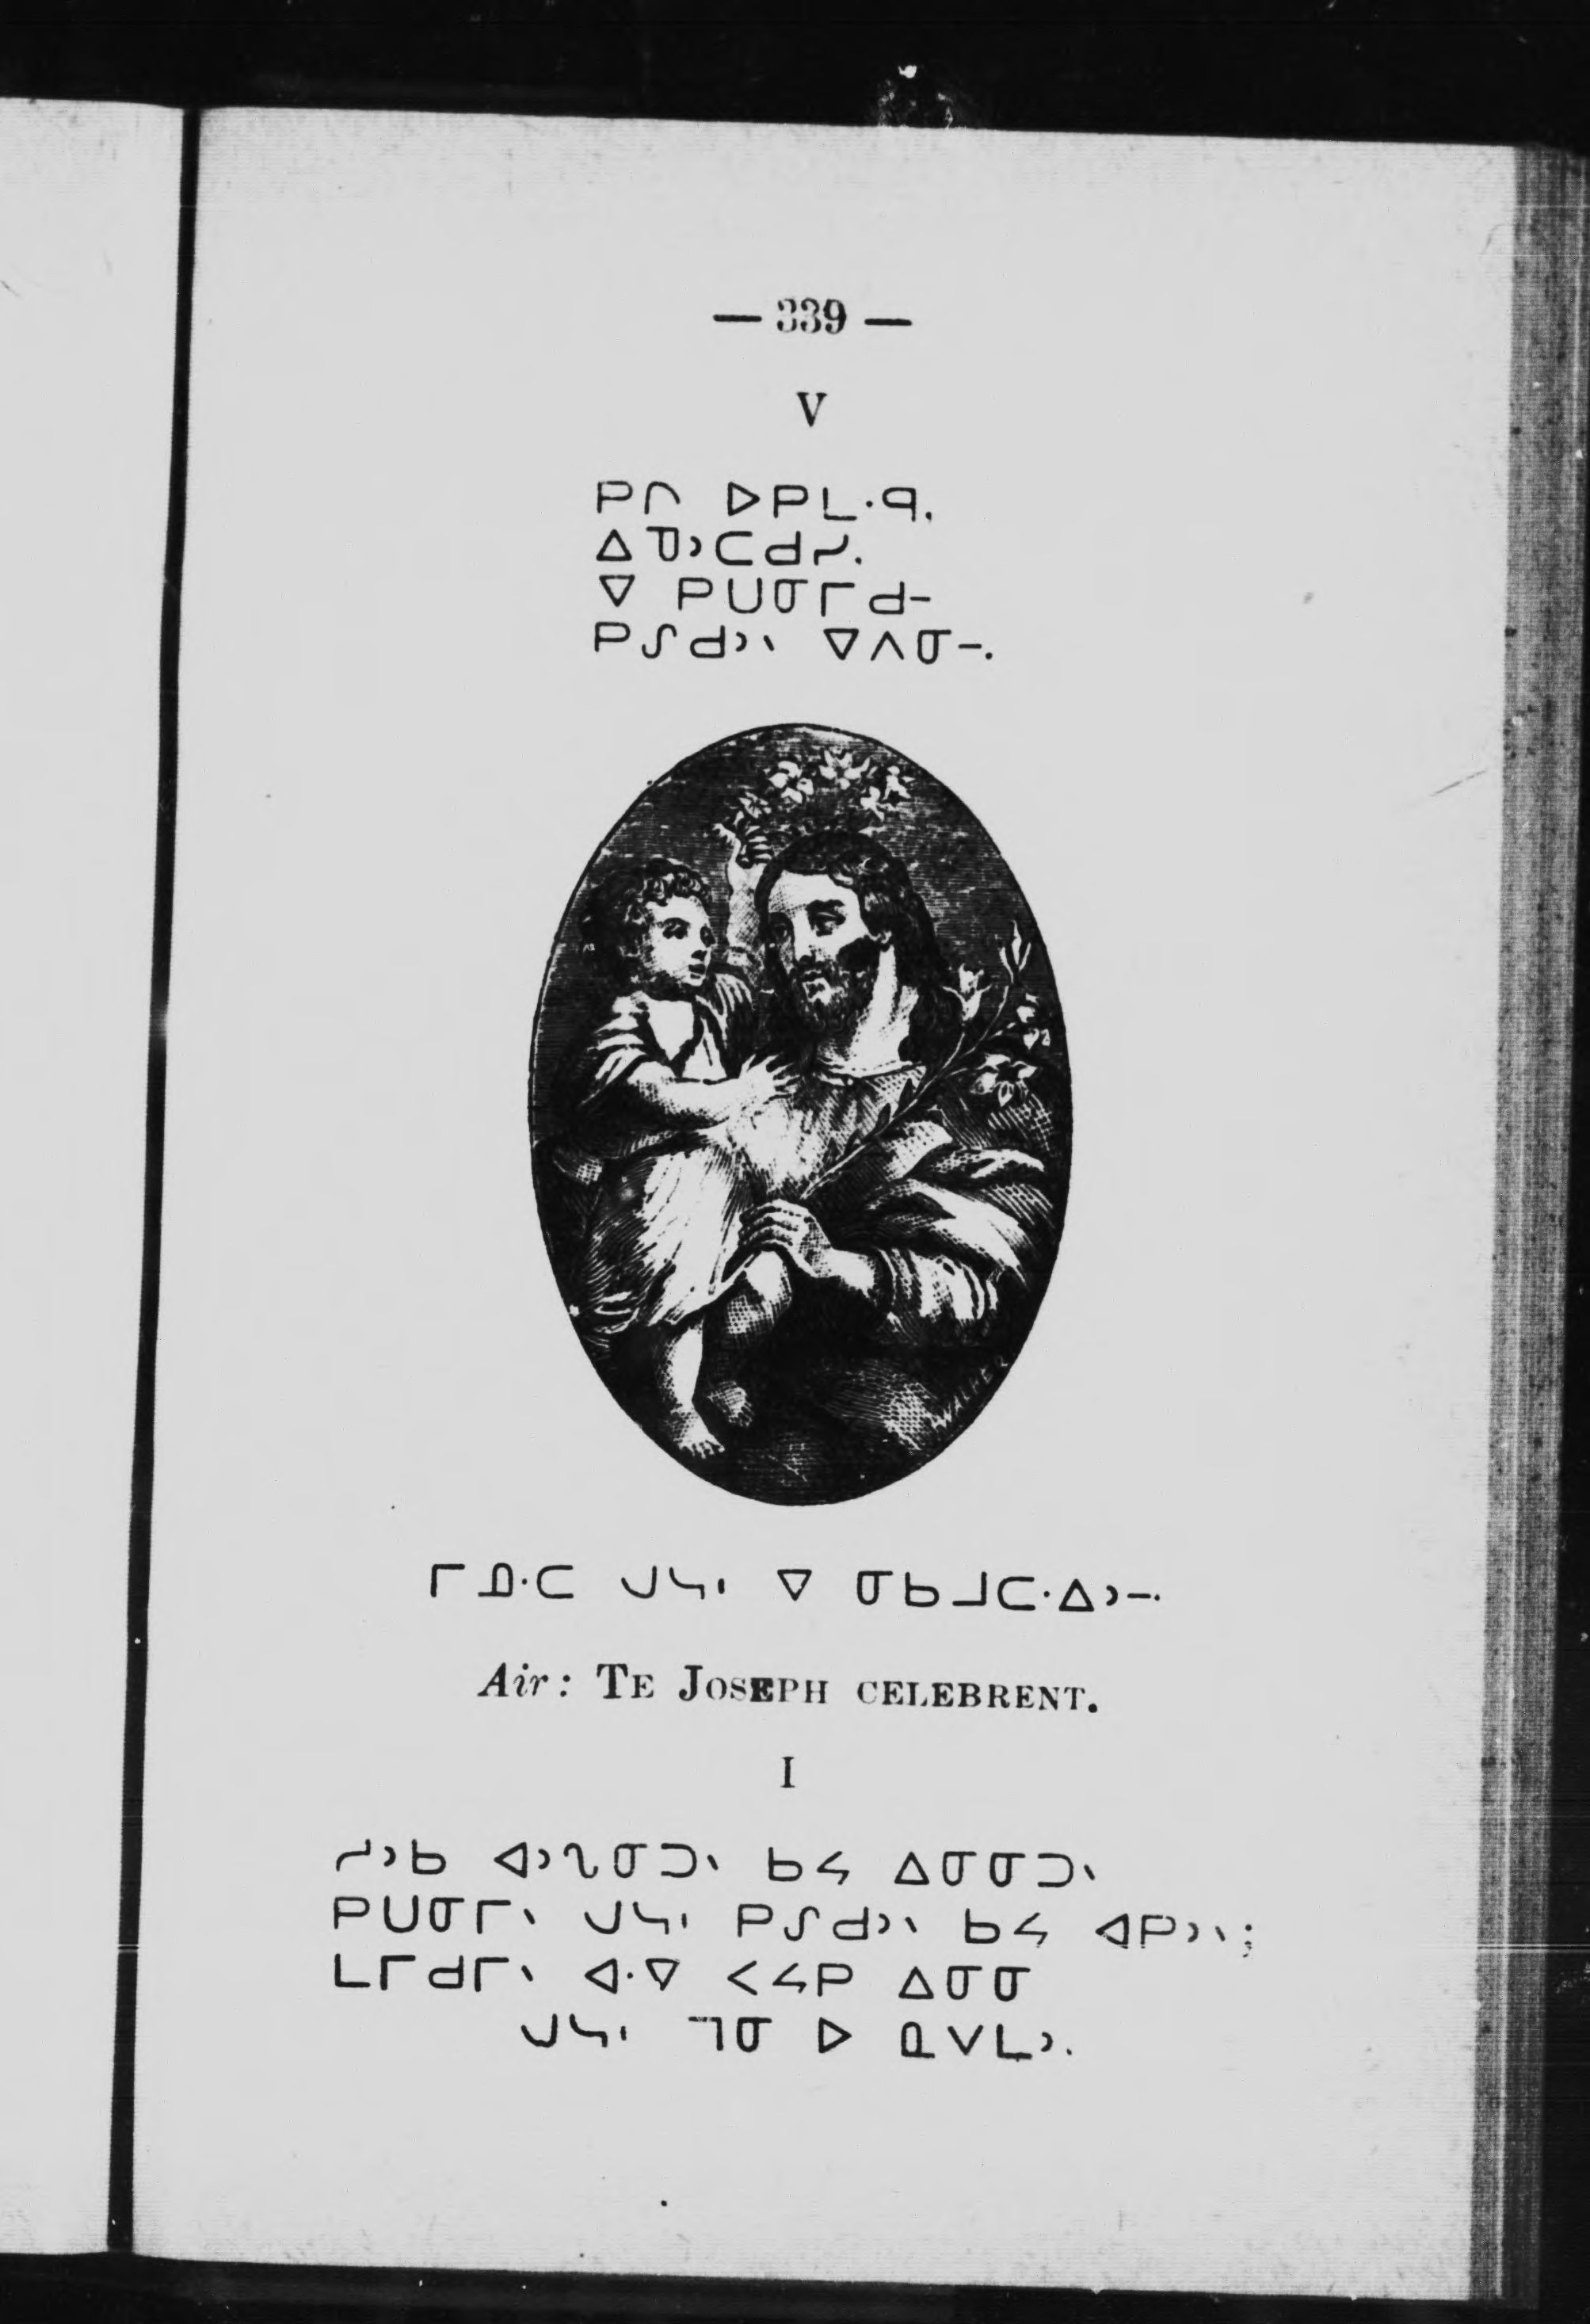 — 339 —
V
ᑭᒋ ᐅᑭᒪ·ᑫ.
ᐃᑫᐣᑕᑯᓯ.
ᐁ ᑭᑌᓂᒥᑯ-
ᑭᔑᑯᐣᐠ ᐁᐱᓂ-.
WALKER
ᒥᓄ·ᑕ ᒍᓭᑊ ᐁ ᓂᑲᒧᑕ·ᐃᐣ-·
Air: TE JOSEPH CELEBRENT.
I
ᓱᐣᑲ ᐊᐣᔐᓂᑐᐠ ᑲᔦ ᐃᓂᓂᑐᐠ
ᑭᑌᓂᒥᐠ ᒍᓭᑊ ᑭᔑᑯᐣᐠ ᑲᔦ ᐊᑭᐣᐠ;
ᒪᒥᑯᒥᐠ ᐊ·ᐁ ᐸᔦᑭ ᐃᓂᓂ
ᒍᓭᑊ ᒣᓂ ᐅ ᓇᐯᒪᐣ.